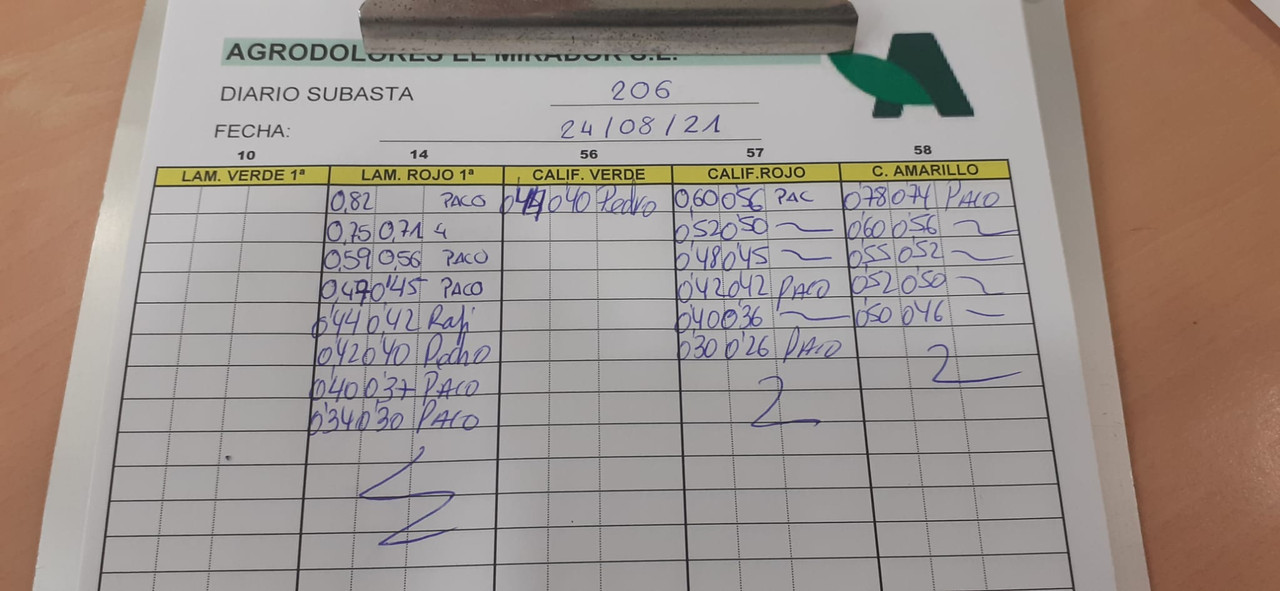 AGRODOLORES EL MIRADOR S.L.
DIARIO SUBASTA 206
FECHA: 24/08/21
10 14 56 57 58
LAM. VERDE 1ª LAM. ROJO 1ª CALIF. VERDE CALIF.ROJO C. AMARILLO
0,82 PACO 0'40 Pedro 0,60 0'56 PAC 0'78 0'74 PACO
0,75 0,71 4 0'52 0'50 0'60 0'56
0,59 0,56 PACO 0'48 0'45 0'55 0'52
0,47 0'45 PACO 0'42 0'42 PACO 0'52 0'50
0'44 0'42 Rafi 0'40 0'36 0'50 0'46
0'42 0'40 Pedro 0'30 0'26 PACO
0'40 0'37 PACO
0'34 0'30 PACO